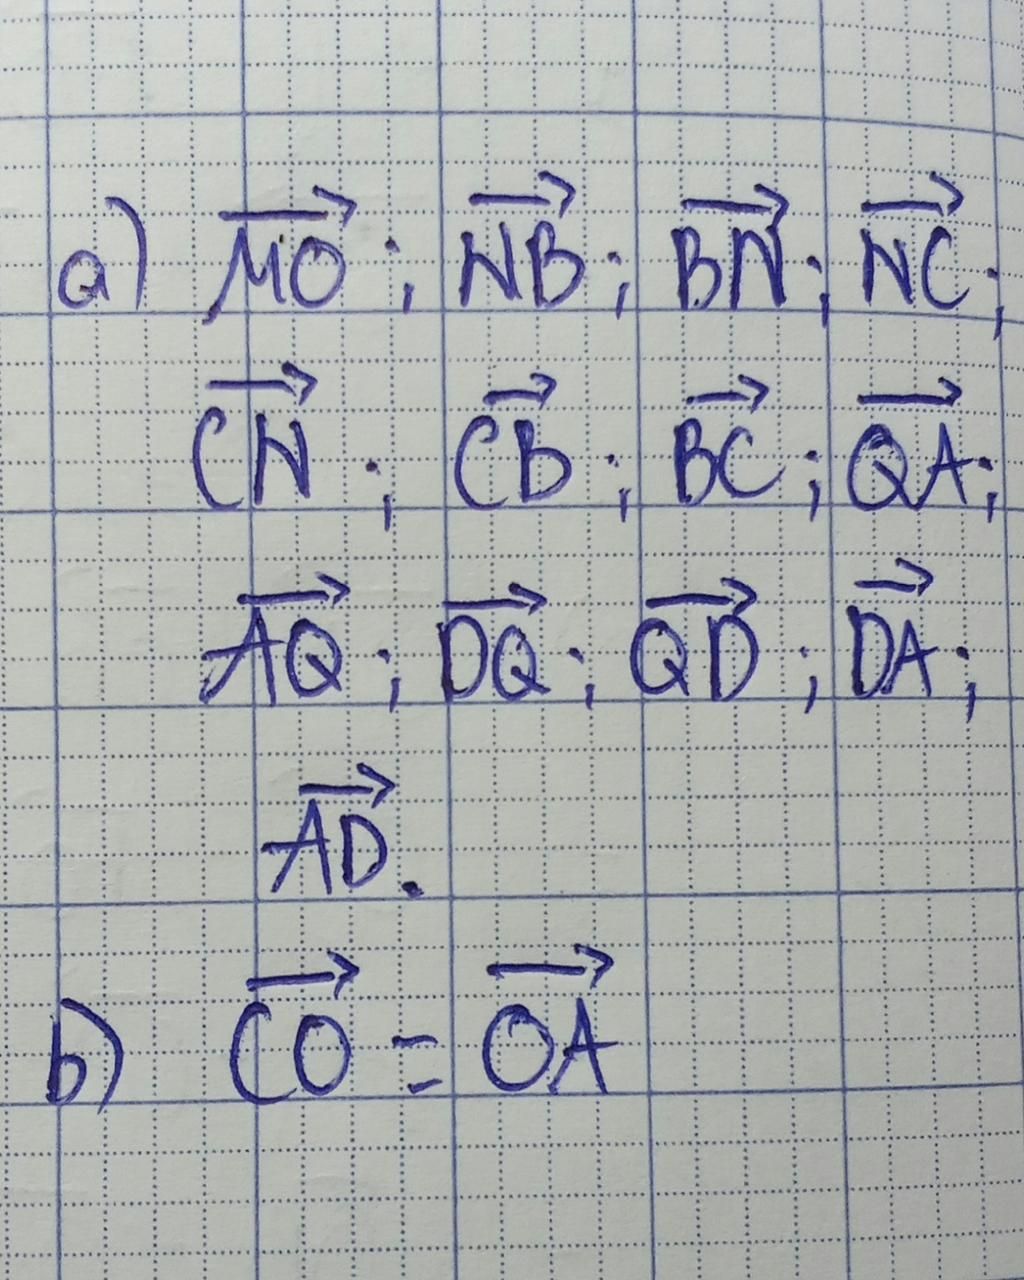 a) $\overrightarrow{MO}$ ; $\overrightarrow{NB}$ ; $\overrightarrow{BN}$ ; $\overrightarrow{NC}$ ;
$\overrightarrow{CN}$ ; $\overrightarrow{CB}$ ; $\overrightarrow{BC}$ ; $\overrightarrow{QA}$ ;
$\overrightarrow{AQ}$ ; $\overrightarrow{DQ}$ ; $\overrightarrow{QD}$ ; $\overrightarrow{DA}$ ;
$\overrightarrow{AD}$.
b) $\overrightarrow{CO}$ = $\overrightarrow{OA}$